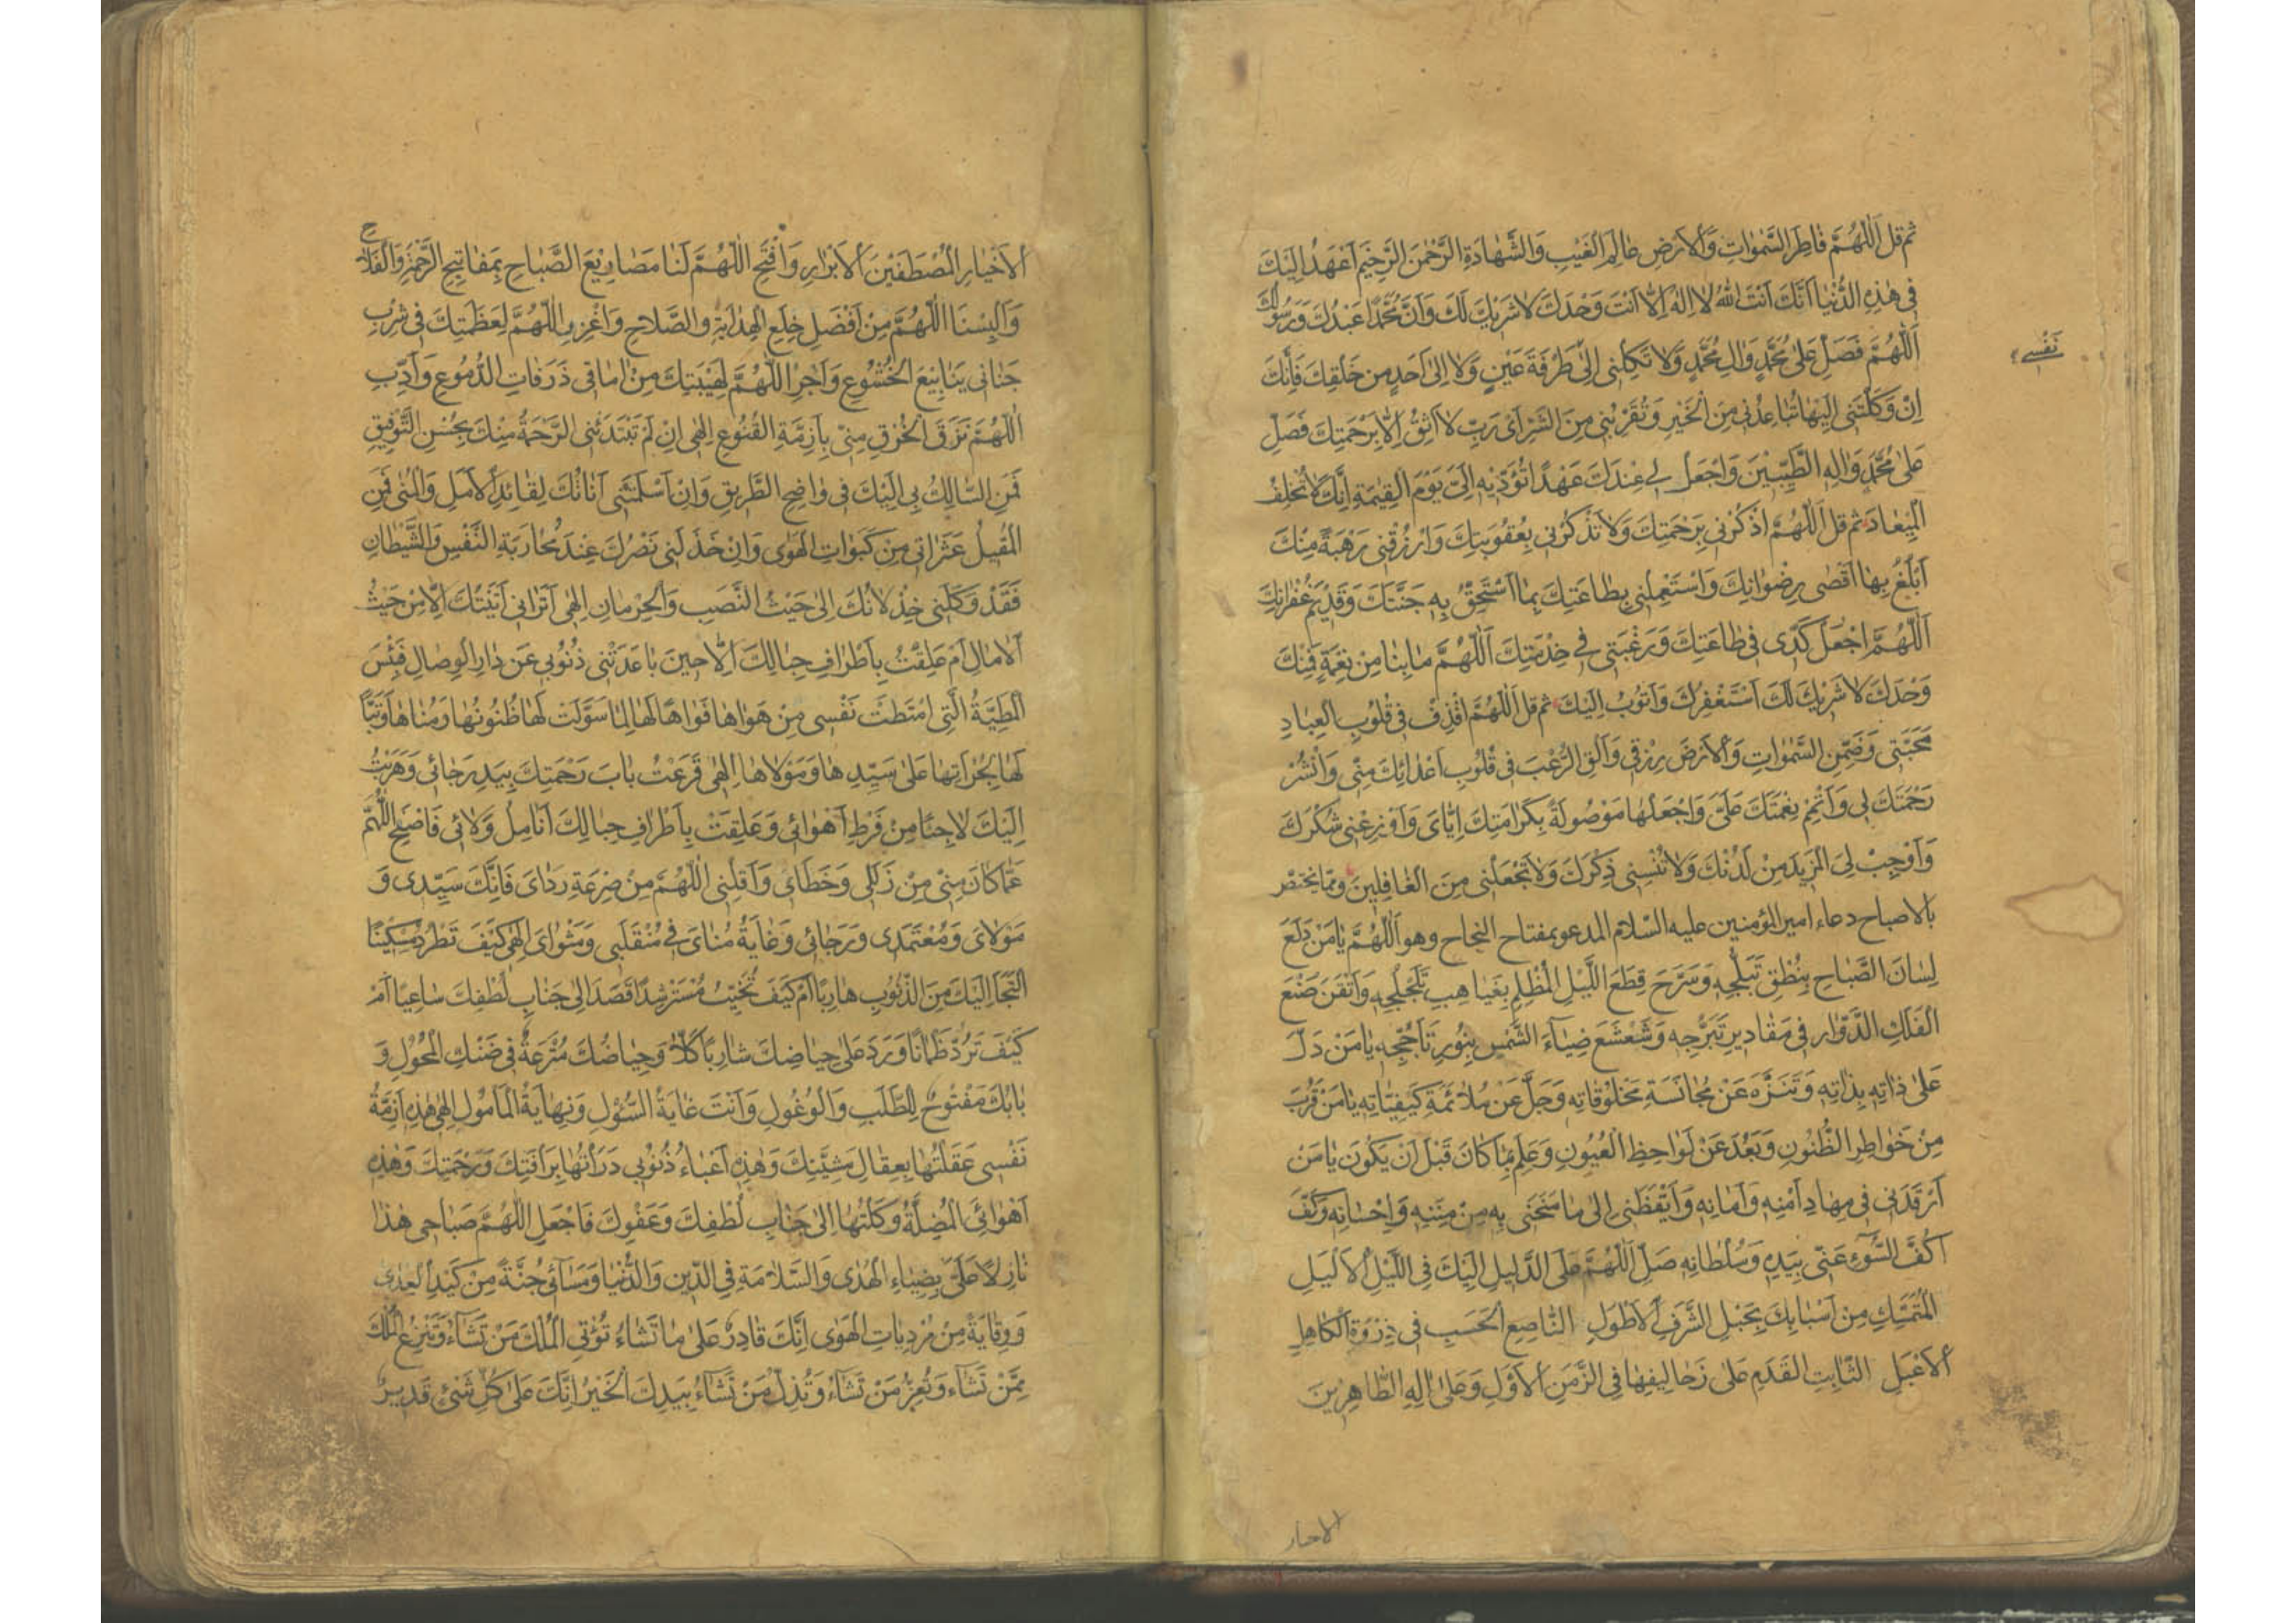 ثم قل اَللّٰهُمَّ فَاطِرَ السَّمٰوَاتِ وَالْاَرْضِ عَالِمَ الْغَيْبِ وَالشَّهَادَةِ الرَّحْمٰنَ الرَّحِيمَ اَعْهَدُ اِلَيْكَ
فِي هٰذِهِ الدُّنْيَا اَنَّكَ اَنْتَ اللّٰهُ لَا اِلٰهَ اِلَّا اَنْتَ وَحْدَكَ لَا شَرِيكَ لَكَ وَاَنَّ مُحَمَّدًا عَبْدُكَ وَرَسُولُكَ
اَللّٰهُمَّ فَصَلِّ عَلٰى مُحَمَّدٍ وَالِ مُحَمَّدٍ وَلَا تَكِلْنِي اِلٰى طَرْفَةَ عَيْنٍ وَلَا اِلٰى اَحَدٍ مِنْ خَلْقِكَ فَاِنَّكَ
نَفْسِي
اِنْ وَكَلْتَنِي اِلَيْهَا تُبَاعِدْنِي مِنَ الْخَيْرِ وَتُقَرِّبْنِي مِنَ الشَّرِّ اَيْ رَبِّ لَا اَثِقُ اِلَّا بِرَحْمَتِكَ فَصَلِّ
عَلٰى مُحَمَّدٍ وَالِهِ الطَّيِّبِيْنَ وَاجْعَلْ لِي عِنْدَكَ عَهْدًا تُؤَدِّيْهِ اِلَيَّ يَوْمَ الْقِيٰمَةِ اِنَّكَ لَا تُخْلِفُ
الْمِيْعَادَ ثم قل اَللّٰهُمَّ اذْكُرْنِي بِرَحْمَتِكَ وَلَا تَذْكُرْنِي بِعُقُوبَتِكَ وَارْزُقْنِي رَهْبَةً مِنْكَ
اَبْلُغُ بِهَا اَقْصٰى رِضْوَانِكَ وَاسْتَعْمِلْنِي بِطَاعَتِكَ بِمَا اَسْتَحِقُّ بِهِ جَنَّتَكَ وَقَدِيْمَ غُفْرَانِكَ
اَللّٰهُمَّ اجْعَلْ كَدِّي فِي طَاعَتِكَ وَرَغْبَتِي فِي خِدْمَتِكَ اَللّٰهُمَّ مَا بِنَا مِنْ نِعْمَةٍ فَمِنْكَ
وَحْدَكَ لَا شَرِيْكَ لَكَ اَسْتَغْفِرُكَ وَاَتُوبُ اِلَيْكَ ثم قل اَللّٰهُمَّ اقْذِفْ فِي قُلُوبِ الْعِبَادِ
مَحَبَّتِي وَضَمِّنِ السَّمٰوَاتِ وَالْاَرْضَ رِزْقِي وَاَلْقِ الرُّعْبَ فِي قُلُوبِ اَعْدَائِكَ مِنِّي وَانْشُرْ
رَحْمَتَكَ لِي وَاَتْمِمْ نِعْمَتَكَ عَلَيَّ وَاجْعَلْهَا مَوْصُولَةً بِكَرَامَتِكَ اِيَّايَ وَاَوْزِعْنِي شُكْرَكَ
وَاَوْجِبْ لِيَ الْمَزِيدَ مِنْ لَدُنْكَ وَلَا تُنْسِنِي ذِكْرَكَ وَلَا تَجْعَلْنِي مِنَ الْغَافِلِيْنَ ومما يختص
بالاصباح دعاء امير المؤمنين عليه السلام المدعو بمفتاح النجاح وهو اَللّٰهُمَّ يَا مَنْ دَلَعَ
لِسَانَ الصَّبَاحِ بِنُطْقِ تَبَلُّجِهِ وَسَرَّحَ قِطَعَ اللَّيْلِ الْمُظْلِمِ بِغَيَاهِبِ تَلَجْلُجِهِ وَاَتْقَنَ صُنْعَ
الْفَلَكِ الدَّوَّارِ فِي مَقَادِيرِ تَبَرُّجِهِ وَشَعْشَعَ ضِيَاءَ الشَّمْسِ بِنُورِ تَأَجُّجِهِ يَا مَنْ دَلَّ
عَلٰى ذَاتِهِ بِذَاتِهِ وَتَنَزَّهَ عَنْ مُجَانَسَةِ مَخْلُوقَاتِهِ وَجَلَّ عَنْ مُلَائَمَةِ كَيْفِيَّاتِهِ يَا مَنْ قَرُبَ
مِنْ خَوَاطِرِ الظُّنُونِ وَبَعُدَ عَنْ لَوَاحِظِ الْعُيُونِ وَعَلِمَ بِمَا كَانَ قَبْلَ اَنْ يَكُونَ يَا مَنْ
اَرْقَدَنِي فِي مِهَادِ اَمْنِهِ وَاَمَانِهِ وَاَيْقَظَنِي اِلٰى مَا مَنَحَنِي بِهِ مِنْ مِنَنِهِ وَاِحْسَانِهِ وَكَفَّ
اَكُفَّ السُّوءِ عَنِّي بِيَدِهِ وَسُلْطَانِهِ صَلِّ اَللّٰهُمَّ عَلَى الدَّلِيلِ اِلَيْكَ فِي اللَّيْلِ الْاَلْيَلِ
الْمُتَمَسِّكِ مِنْ اَسْبَابِكَ بِحَبْلِ الشَّرَفِ الْاَطْوَلِ النَّاصِعِ الْحَسَبِ فِي ذِرْوَةِ الْكَاهِلِ
الْاَعْبَلِ الثَّابِتِ الْقَدَمِ عَلٰى زَحَالِيفِهَا فِي الزَّمَنِ الْاَوَّلِ وَعَلٰى اٰلِهِ الطَّاهِرِيْنَ
الاخيار
الْاَخْيَارِ الْمُصْطَفَيْنَ الْاَبْرَارِ وَافْتَحِ اللّٰهُمَّ لَنَا مَصَارِيْعَ الصَّبَاحِ بِمَفَاتِيحِ الرَّحْمَةِ وَالْفَلَاحِ
وَاَلْبِسْنَا اللّٰهُمَّ مِنْ اَفْضَلِ خِلَعِ الْهِدَايَةِ وَالصَّلَاحِ وَاغْزِرِ اللّٰهُمَّ لِعَظَمَتِكَ فِي شِرْبِ
جَنَانِي يَنَابِيْعَ الْخُشُوعِ وَاَجْرِ اللّٰهُمَّ لِهَيْبَتِكَ مِنْ اٰمَاقِي ذَرَفَاتِ الدُّمُوعِ وَاَدِّبِ
اللّٰهُمَّ نَزَقَ الْخُرْقِ مِنِّي بِاَزِمَّةِ الْقُنُوعِ اِلٰهِي اِنْ لَمْ تَبْتَدِئْنِي الرَّحْمَةُ مِنْكَ بِحُسْنِ التَّوْفِيْقِ
فَمَنِ السَّالِكُ بِي اِلَيْكَ فِي وَاضِحِ الطَّرِيقِ وَاِنْ اَسْلَمَتْنِي اَنَاتُكَ لِقَائِدِ الْاَمَلِ وَالْمُنٰى فَمَنِ
الْمُقِيلُ عَثَرَاتِي مِنْ كَبَوَاتِ الْهَوٰى وَاِنْ خَذَلَنِي نَصْرُكَ عِنْدَ مُحَارَبَةِ النَّفْسِ وَالشَّيْطَانِ
فَقَدْ وَكَلَنِي خِذْلَانُكَ اِلٰى حَيْثُ النَّصَبِ وَالْحِرْمَانِ اِلٰهِي اَتَرَانِي اَتَيْتُكَ اِلَّا مِنْ حَيْثُ
الْاٰمَالِ اَمْ عَلِقْتُ بِاَطْرَافِ حِبَالِكَ اِلَّا حِيْنَ بَاعَدَتْنِي ذُنُوبِي عَنْ دَارِ الْوِصَالِ فَبِئْسَ
الْمَطِيَّةُ الَّتِي امْتَطَتْ نَفْسِي مِنْ هَوَاهَا فَوَاهًا لَهَا لِمَا سَوَّلَتْ لَهَا ظُنُونُهَا وَمُنَاهَا وَتَبًّا
لَهَا بِجُرْأَتِهَا عَلٰى سَيِّدِهَا وَمَوْلَاهَا اِلٰهِي قَرَعْتُ بَابَ رَحْمَتِكَ بِيَدِ رَجَائِي وَهَرَبْتُ
اِلَيْكَ لَاجِئًا مِنْ فَرْطِ اَهْوَائِي وَعَلِقَتْ بِاَطْرَافِ حِبَالِكَ اَنَامِلُ وَلَائِي فَاصْفَحِ اللّٰهُمَّ
عَمَّا كَانَ مِنِّي مِنْ زَلَلِي وَخَطَايَ وَاَقِلْنِي اللّٰهُمَّ مِنْ صِرْعَةِ رَدَايَ فَاِنَّكَ سَيِّدِي وَ
مَوْلَايَ وَمُعْتَمَدِي وَرَجَائِي وَغَايَةُ مُنَايَ فِي مُنْقَلَبِي وَمَثْوَايَ اِلٰهِي كَيْفَ تَطْرُدُ مِسْكِيْنًا
الْتَجَأَ اِلَيْكَ مِنَ الذُّنُوبِ هَارِبًا اَمْ كَيْفَ تُخَيِّبُ مُسْتَرْشِدًا قَصَدَ اِلٰى جَنَابِ لُطْفِكَ سَاعِيًا اَمْ
كَيْفَ تَرُدُّ ظَمْاٰنًا وَرَدَ عَلٰى حِيَاضِكَ شَارِبًا كَلَّا وَحِيَاضُكَ مُتْرَعَةٌ فِي ضَنْكِ الْمُحُولِ وَ
بَابُكَ مَفْتُوحٌ لِلطَّلَبِ وَالْوُغُولِ وَاَنْتَ غَايَةُ السُّؤْلِ وَنِهَايَةُ الْمَأْمُولِ اِلٰهِي هٰذِهِ اَزِمَّةُ
نَفْسِي عَقَلْتُهَا بِعِقَالِ مَشِيَّتِكَ وَهٰذِهِ اَعْبَاءُ ذُنُوبِي دَرَأْتُهَا بِرَأْفَتِكَ وَرَحْمَتِكَ وَهٰذِهِ
اَهْوَائِيَ الْمُضِلَّةُ وَكَلْتُهَا اِلٰى جَنَابِ لُطْفِكَ وَعَفْوِكَ فَاجْعَلِ اللّٰهُمَّ صَبَاحِي هٰذَا
نَازِلًا عَلَيَّ بِضِيَاءِ الْهُدٰى وَالسَّلَامَةِ فِي الدِّينِ وَالدُّنْيَا وَمَسَائِي جُنَّةً مِنْ كَيْدِ الْعِدٰى
وَوِقَايَةً مِنْ مُرْدِيَاتِ الْهَوٰى اِنَّكَ قَادِرٌ عَلٰى مَا تَشَاءُ تُؤْتِي الْمُلْكَ مَنْ تَشَاءُ وَتَنْزِعُ الْمُلْكَ
مِمَّنْ تَشَاءُ وَتُعِزُّ مَنْ تَشَاءُ وَتُذِلُّ مَنْ تَشَاءُ بِيَدِكَ الْخَيْرُ اِنَّكَ عَلٰى كُلِّ شَيْءٍ قَدِيرٌ